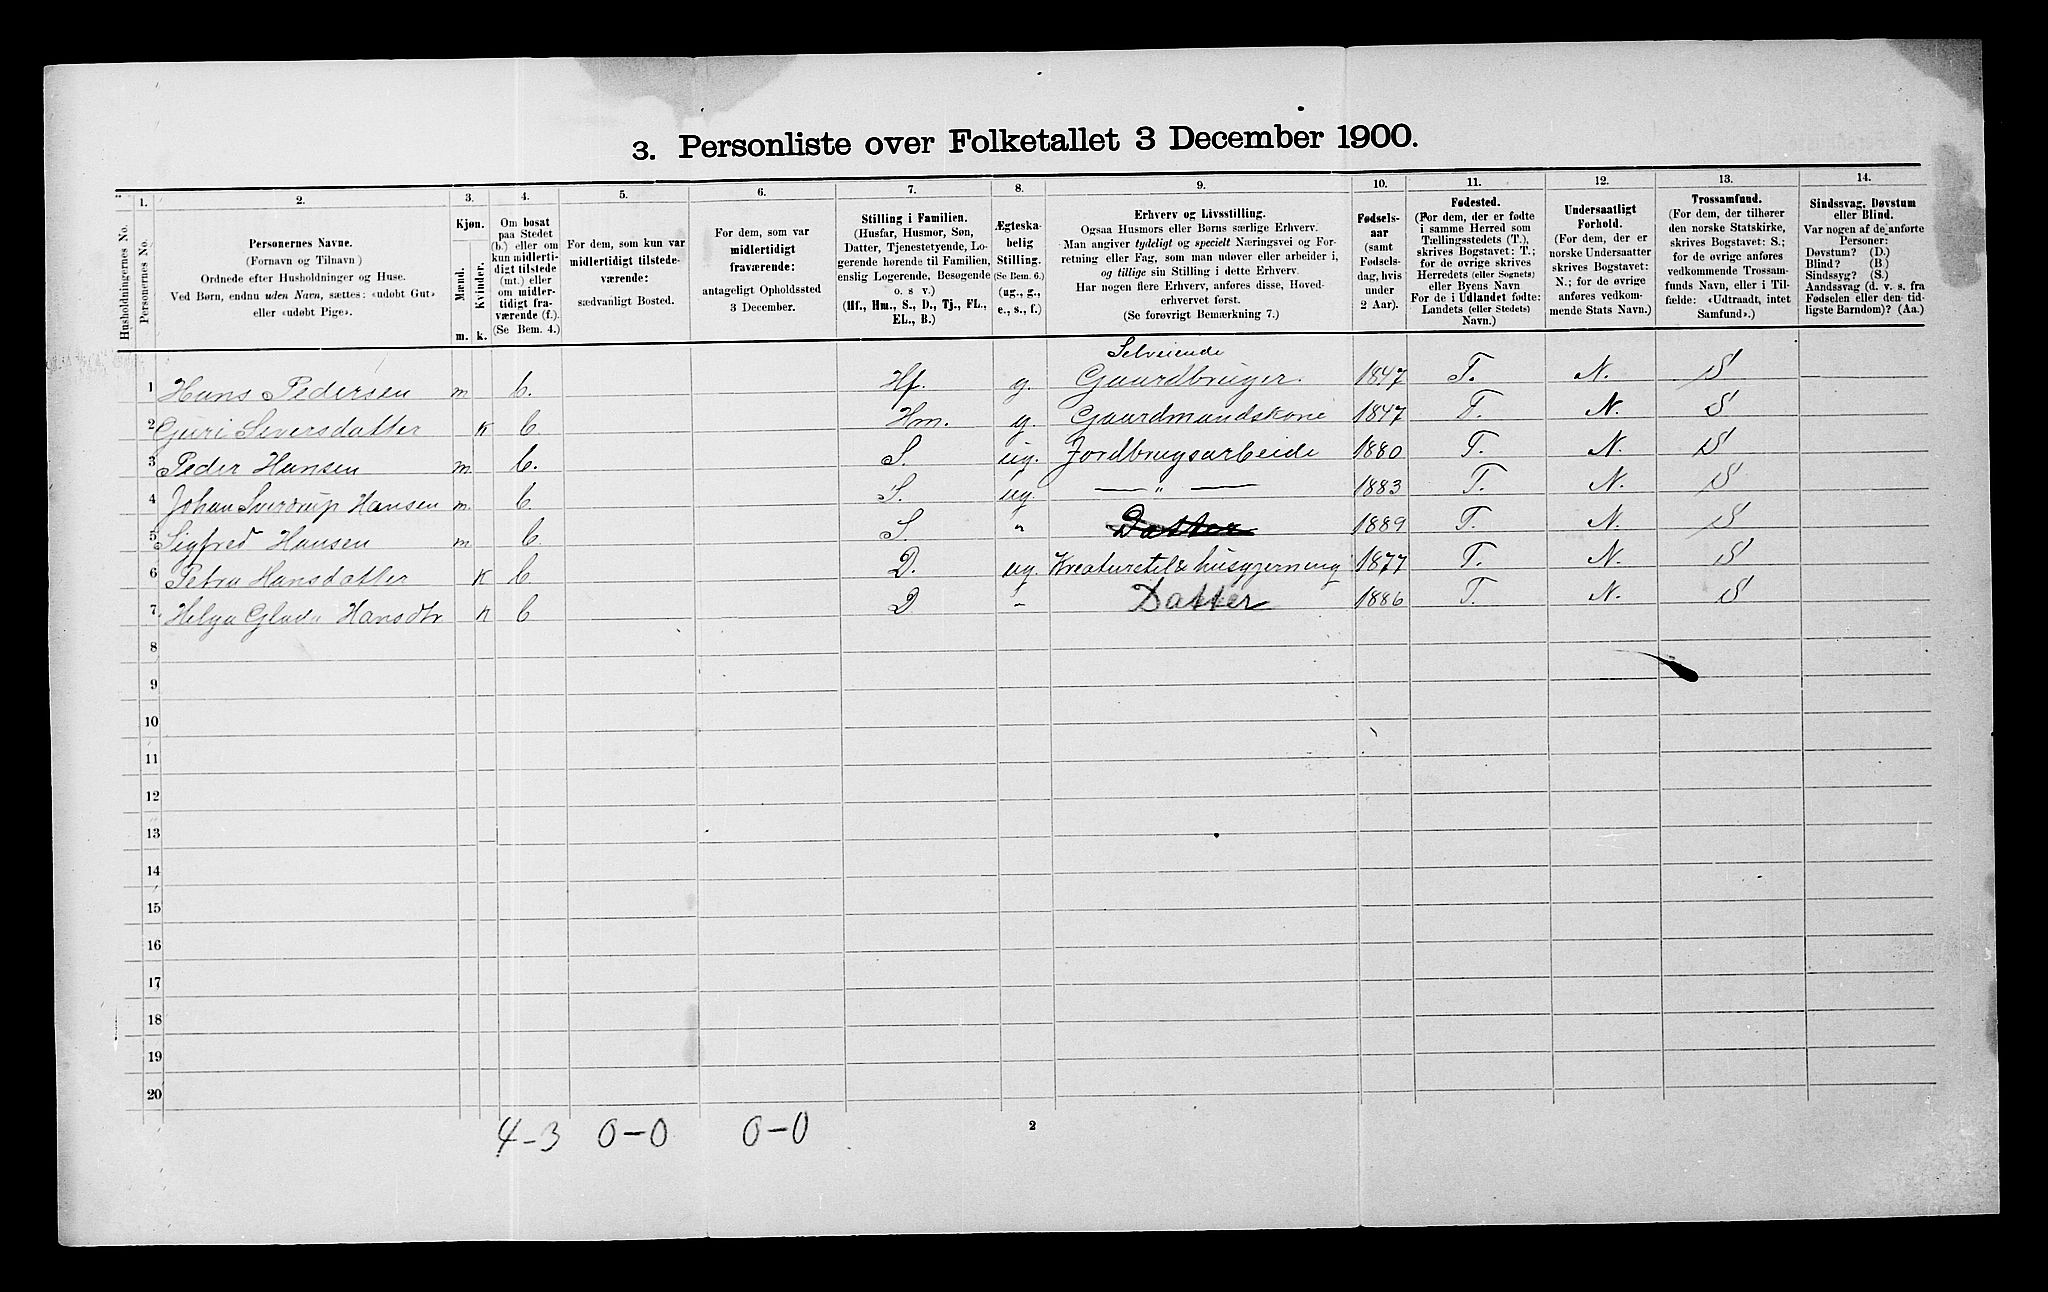 3. Personliste over Folketallet 3 December 1900.
Husholdningernes No.
1.
Personernes No.
2.
Personernes Navne.
(Fornavn og Tilnavn)
Ordnede efter Husholdninger og Huse.
Ved Børn, endnu uden Navn, sættes: «udøbt Gut»
eller «udøbt Pige».
3.
Kjøn.
Mænd.
Kvinder.
m. k.
4.
Om bosat
paa Stedet
(b.) eller om
kun midlerti-
digt tilstede
(mt.) eller
om midler-
tidigt fra-
værende (f.).
(Se Bem. 4.)
5.
For dem, som kun var
midlertidigt tilstede-
værende:
sædvanligt Bosted.
6.
For dem, som var
midlertidigt
fraværende:
antageligt Opholdssted
3 December.
7.
Stilling i Familien.
(Husfar, Husmor, Søn,
Datter, Tjenestetyende, Lo-
gerende hørende til Familien,
enslig Logerende, Besøgende
o. s v.)
(Hf., Hm., S., D., Tj., FL.,
EL., B.)
8.
Ægteska-
belig
Stilling.
(Se Bem. 6.)
(ug., g.,
e., s., f.)
9.
Erhverv og Livsstilling.
Ogsaa Husmors eller Børns særlige Erhverv.
Man angiver tydeligt og specielt Næringsvei og For-
retning eller Fag, som man udøver eller arbeider i,
og tillige sin Stilling i dette Erhverv.
Har nogen flere Erhverv, anføres disse, Hoved-
erhvervet først.
(Se forøvrigt Bemærkning 7.)
10.
Fødsels-
aar
(samt
Fødsels-
dag, hvis
under
2 Aar).
11.
Fødested.
(For dem, der er fødte
i samme Herred som
Tællingsstedets (T.),
skrives Bogstavet: T.;
for de øvrige skrives
Herredets (eller Sognets)
eller Byens Navn
For de i Udlandet fødte:
Landets (eller Stedets)
Navn.)
12.
Undersaatligt
Forhold.
(For dem, der er
norske Undersaatter
skrives Bogstavet:
N.; for de øvrige
anføres vedkom-
mende Stats Navn.)
13.
Trossamfund.
(For dem, der tilhører
den norske Statskirke,
skrives Bogstavet: S.;
for de øvrige anføres
vedkommende Trossam-
funds Navn, eller i Til-
fælde: «Udtraadt, intet
Samfund».)
14.
Sindssvag, Døvstum
eller Blind.
Var nogen af de anførte
Personer:
Døvstum? (D.)
Blind? (B.)
Sindssyg? (S.)
Aandssvag (d. v. s. fra
Fødselen eller den tid-
ligste Barndom)? (Aa.)
1 Hans Pedersen m b. Hf. g. Selveiende Gaardbruger. 1847 T. N. S
2 Guri Siversdatter k b Hm. g. Gaardmandskone 1847 T. N. S
3 Peder Hansen m b. S. ug. Jordbrugsarbeide 1880 T. N. S
4 Johan Sverdrup Hansen m. b. S. ug. — " — 1883 T. N. S
5 Sigfred Hansen m b. S " Datter 1889 T. N. S
6 Petra Hansdatter k b D. ug. Kreaturstel & husgjerning 1877 T. N. S
7 Helga Hansdtr k b D Datter 1886 T. N. S
8
9
10
11
12
13
14
15
16
17
18
19
20
4-3 0-0 0-0
2